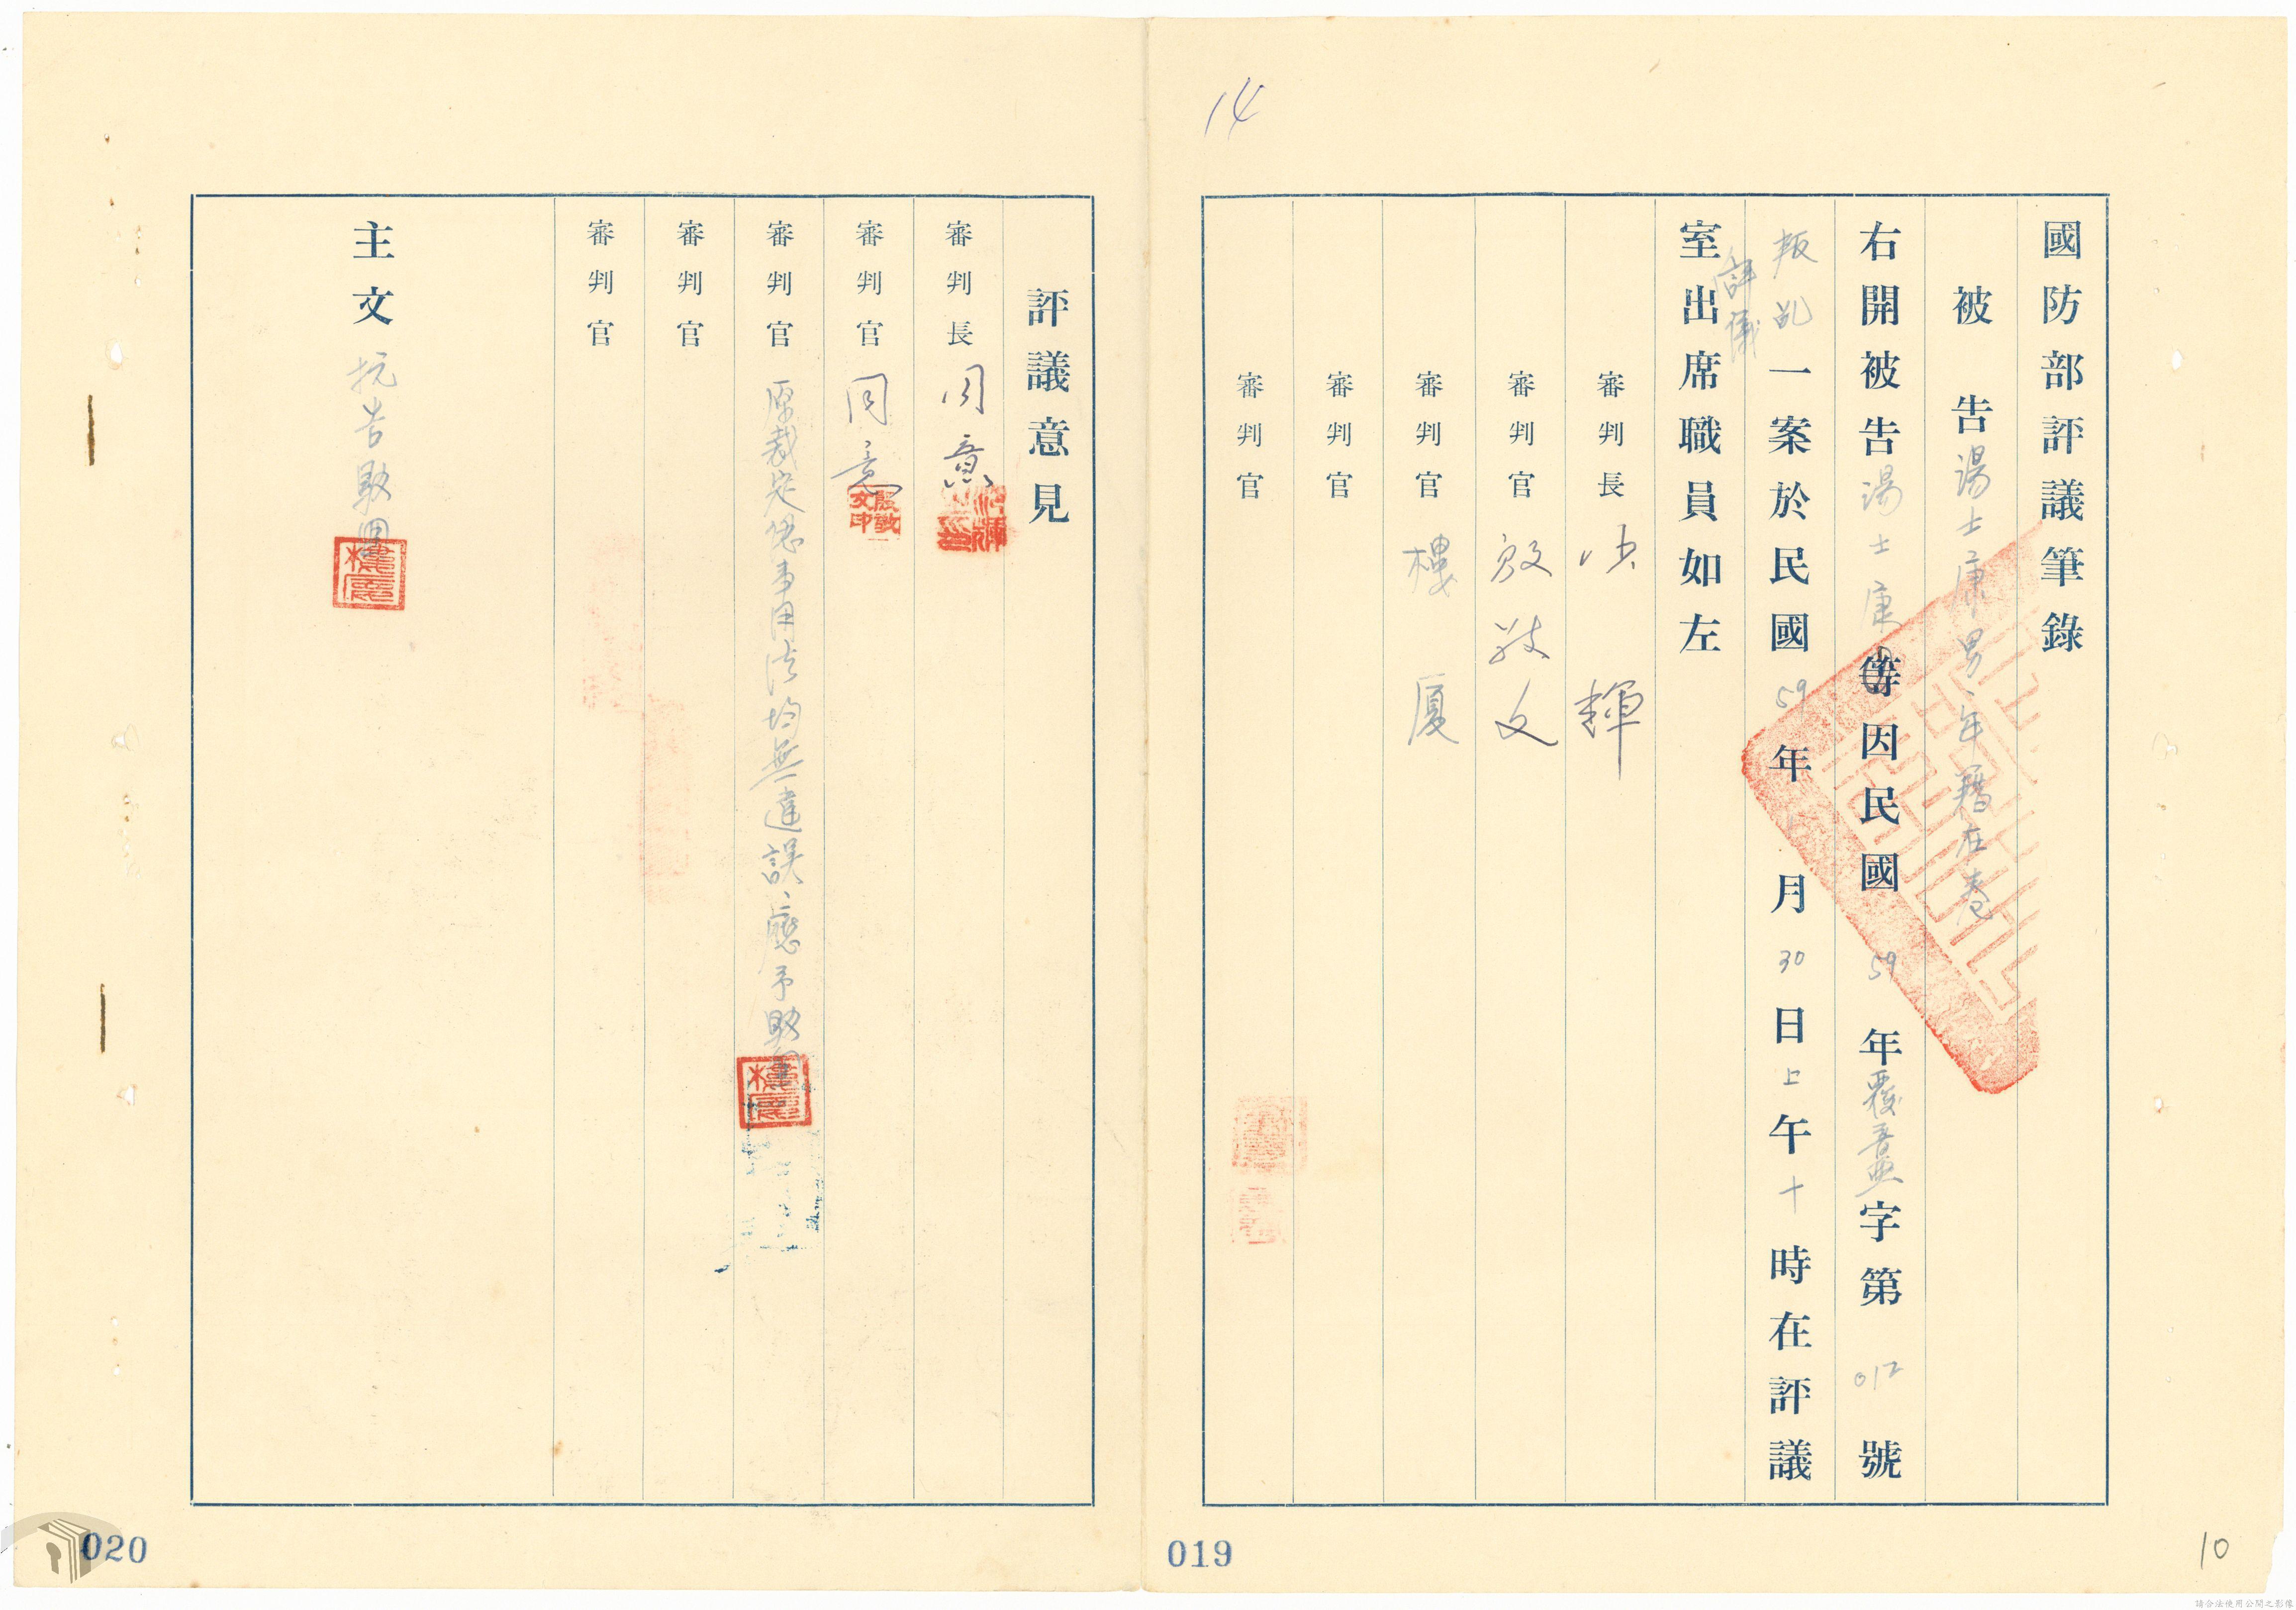 14
國防部評議筆錄
被告湯士康男、年籍在卷
右開被告湯士康等因民國59年覆普典字第012號
叛亂一案於民國59年 月30日上午十時在評議
評議
室出席職員如左
審判長 輝
審判官 殷敬文
審判官 樓厦
審判官
審判官
019
10
評議意見
審判長 同意
審判官 同意
殷敬文印
審判官 原裁定認事用法均無違誤、應予駁回
樓厦
審判官
審判官
主文 抗告駁回
樓厦
020
請合法使用公開之影像